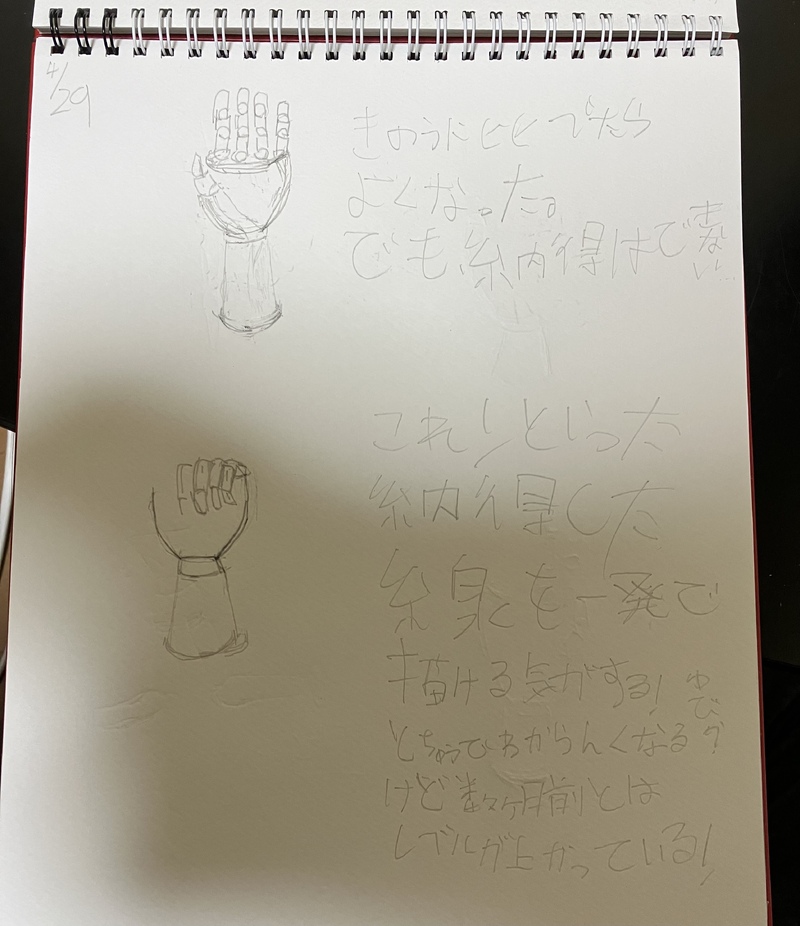 4/29
きのうにヒヒべたら
よくなった。
でも納得はできない…
これ!といった
納得した
線を一発で
描ける気がする!
とちゅうでわからんくなる ゆびが
けど数ヶ月前とは
レベルが上がっている!